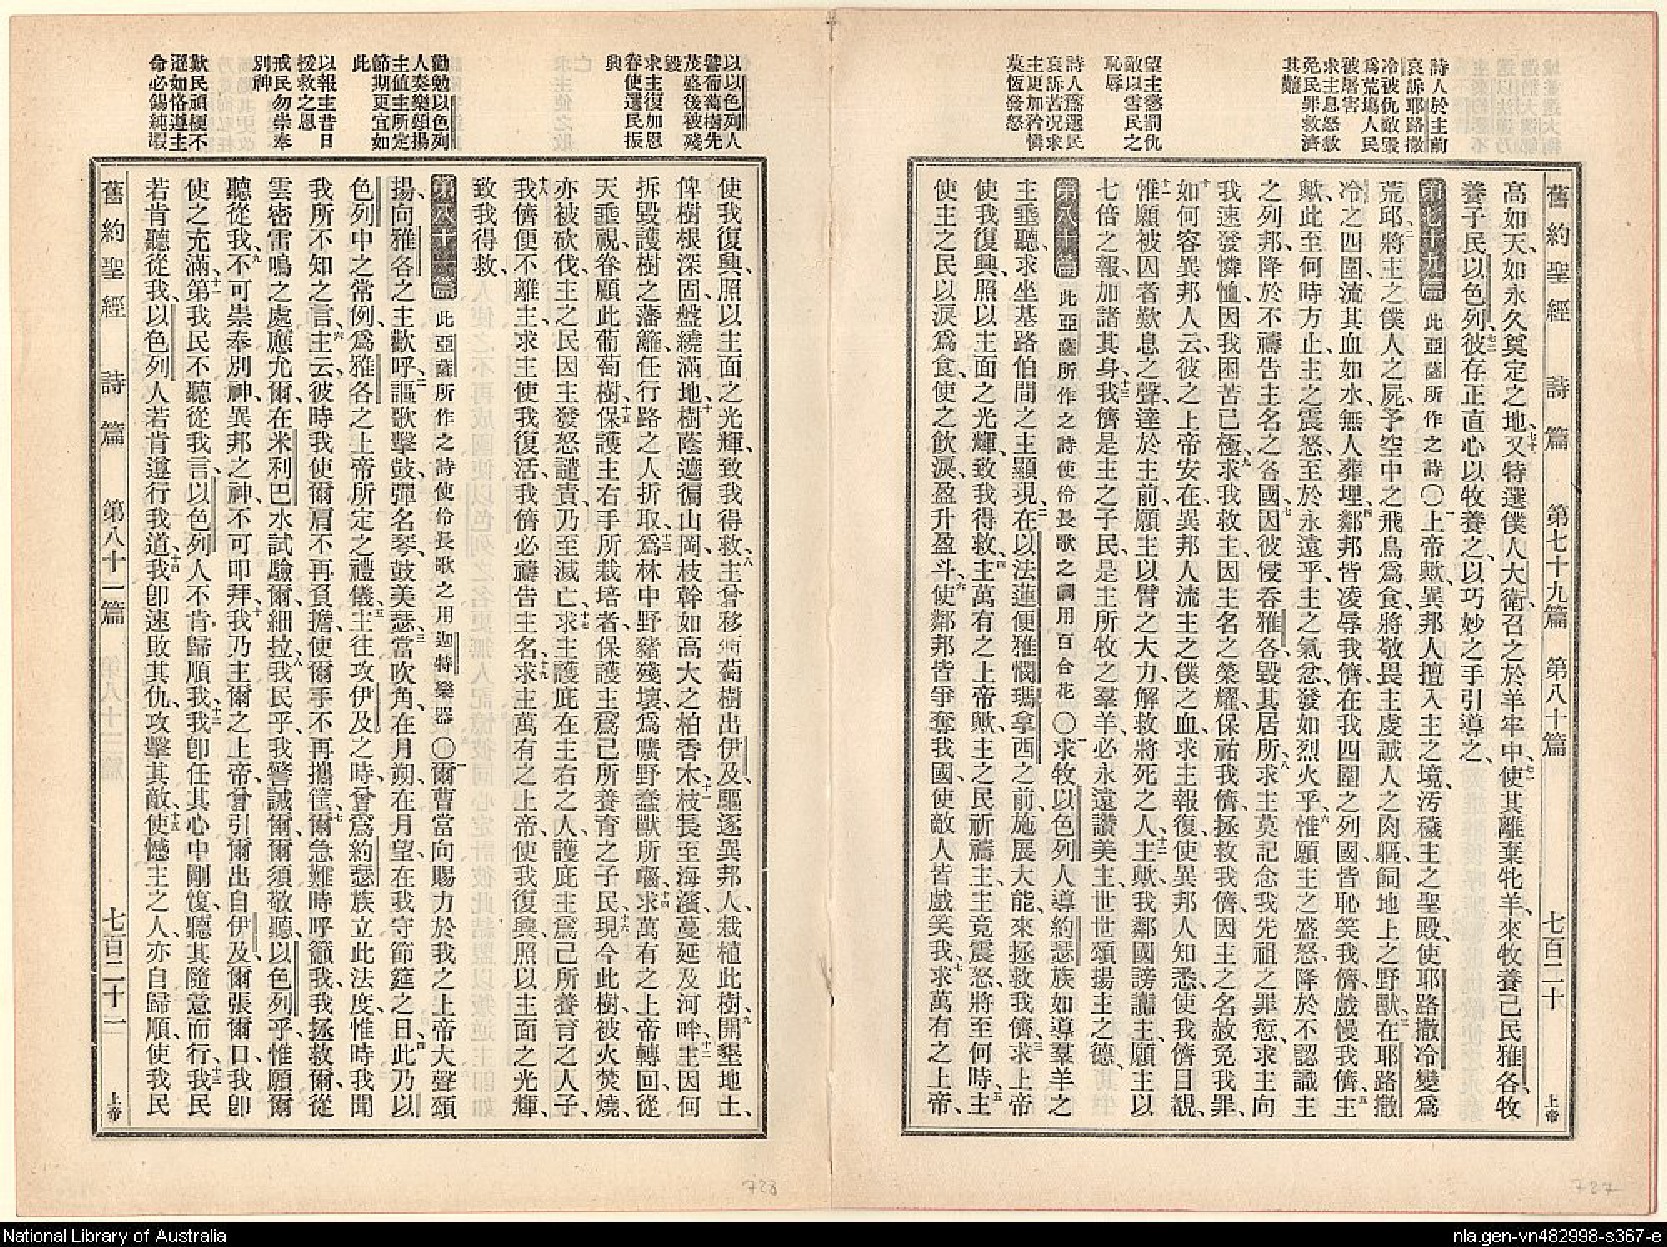 舊約聖經 詩篇 第七十九篇 第八十篇 七百二十 上帝
詩人於主前
哀訴耶路撒
冷被仇敵毀
爲荒塲人民
被屠害
求主息怒赦
免民罪救濟
其難
望主懲罰仇
敵以雪民之
恥辱
詩人爲選民
哀訴苦况求
主更加矜憐
莫恆發怒
高如天、如永久奠定之地、七十又特選僕人大衛、召之於羊牢中、七一使其離棄牝羊、來牧養己民雅各、牧
養子民以色列、七二彼存正直心以牧養之、以巧妙之手引導之、
第七十九篇 此亞薩所作之詩〇一上帝歟、異邦人擅入主之境、汚穢主之聖殿、使耶路撒冷變爲
荒邱、二將主之僕人之屍、予空中之飛鳥爲食、將敬畏主虔誠人之肉軀、飼地上之野獸、三在耶路撒
冷之四圍、流其血如水、無人葬埋、四鄰邦皆凌辱我儕、在我四圍之列國、皆恥笑我儕、戲慢我儕、五主
歟、此至何時方止、主之震怒至於永遠乎、主之氣忿、發如烈火乎、六惟願主之盛怒、降於不認識主
之列邦、降於不禱告主名之各國、七因彼侵吞雅各、毀其居所、八求主莫記念我先祖之罪愆、求主向
我速發憐恤、因我困苦已極、九求我救主、因主名之榮耀、保祐我儕、拯救我儕、因主之名、赦免我罪、
十如何容異邦人云、彼之上帝安在、異邦人流主之僕之血、求主報復、使異邦人知悉、使我儕目覩、
十一惟願被囚者歎息之聲、達於主前、願主以臂之大力、解救將死之人、十二主歟、我鄰國謗讟主、願主以
七倍之報、加諸其身、十三我儕是主之子民、是主所牧之羣羊、必永遠讚美主、世世頌揚主之德、
第八十篇 此亞薩所作之詩使伶長歌之調用百合花〇一求牧以色列人、導約瑟族如導羣羊之
主垂聽、求坐基路伯間之主顯現、二在以法蓮便雅憫瑪拿西之前、施展大能、來拯救我儕、三求上帝
使我復興、照以主面之光輝、致我得救、四主萬有之上帝歟、主之民祈禱主、主竟震怒、將至何時、五主
使主之民以淚爲食、使之飲淚、盈升盈斗、六使鄰邦皆爭奪我國、使敵人皆戲笑我、七求萬有之上帝、
727
以以色列人
譬葡萄樹先
茂盛後被殘
毀
求主復加恩
眷使選民振
興
勸勉以色列
人奏樂頌揚
主値主所定
節期更宜如
此
以報主昔日
拯救之恩
戒民勿崇奉
別神
歎民頑梗不
遜如恪遵主
命必錫純嘏
使我復興、照以主面之光輝、致我得救、八主曾移葡萄樹出伊及、驅逐異邦人、栽植此樹、九開墾地土、
俾樹根深固、盤繞滿地、十樹蔭遮徧山岡、枝幹如高大之柏香木、十一枝長至海濱、蔓延及河畔、十二主因何
拆毀護樹之藩籬、任行路之人折取、十三爲林中野豬殘壞、爲曠野羣獸所囓、十四求萬有之上帝轉回、從
天垂視、眷顧此葡萄樹、十五保護主右手所栽培者、保護主爲己所養育之子民、十六現今此樹被火焚燒、
亦被砍伐、主之民因主發怒譴責、乃至滅亡、十七求主護庇在主右之人、護庇主爲己所養育之人子、
十八我儕便不離主、求主使我復活、我儕必禱告主名、十九求主萬有之上帝、使我復興、照以主面之光輝、
致我得救、
第八十一篇 此亞薩所作之詩使伶長歌之用迦特樂器〇一爾曹當向賜力於我之上帝大聲頌
揚、向雅各之主歡呼、二謳歌擊鼓、彈名琴、鼓美瑟、三當吹角、在月朔、在月望、在我守節筵之日、四此乃以
色列中之常例、爲雅各之上帝所定之禮儀、五主往攻伊及之時、曾爲約瑟族立此法度、惟時我聞
我所不知之言、六主云、彼時我使爾肩不再負擔、使爾手不再攜筐、七爾急難時呼籲我、我拯救爾、從
雲密雷鳴之處應允爾、在米利巴水試驗爾、細拉、八我民乎、我警誡爾、爾須敬聽、以色列乎、惟願爾
聽從我、九不可崇奉別神、異邦之神、不可叩拜、十我乃主爾之上帝、曾引爾出自伊及、爾張爾口、我卽
使之充滿、十一第我民不聽從我言、以色列人不肯歸順我、十二我卽任其心中剛愎、聽其隨意而行、十三我民
若肯聽從我、以色列人若肯遵行我道、十四我卽速敗其仇、攻擊其敵、十五使憾主之人、亦自歸順、使我民
舊約聖經 詩篇 第八十一篇 七百二十一 上帝
728
National Library of Australia
nla.gen-vn482998-s367-e